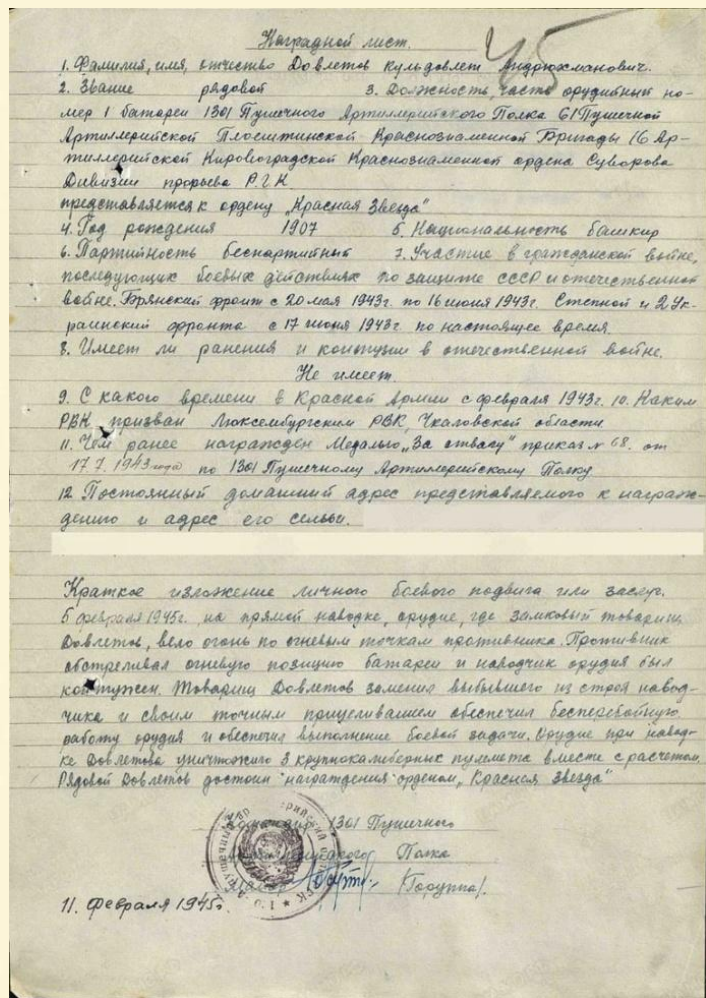 Наградной лист.
45
1. Фамилия, имя, отчество Довлетов Кульдовлет Андрюхманович.
2. Звание рядовой 3. Должность, часть орудийный но-
мер 1 батареи 1301 Пушечного Артиллерийского Полка 61 Пушечной
Артиллерийской Плоештинской Краснознаменной Бригады 16 Ар-
тиллерийской Кировоградской Краснознаменной ордена Суворова
Дивизии прорыва Р.Г.К
представляется к ордену „Красная Звезда"
4. Год рождения 1907 5. Национальность башкир
6. Партийность беспартийный 7. Участие в гражданской войне,
последующих боевых действиях по защите СССР и отечественной
войне. Брянский фронт с 20 мая 1943г. по 16 июня 1943г. Степной и 2 Ук-
раинский фронта с 17 июня 1943г. по настоящее время
8. Имеет ли ранения и контузии в отечественной войне.
Не имеет.
9. С какого времени в Красной Армии с февраля 1943г. 10. Каким
РВК призван Люксембургским РВК, Чкаловской области
11. Чем ранее награжден Медалью „За отвагу" приказ № 68. от
17.7.1943 года по 1301 Пушечному Артиллерийскому Полку
12 Постоянный домашний адрес представляемого к награж-
дению и адрес его семьи.
Краткое изложение личного боевого подвига или заслуг.
5 февраля 1945г. на прямой наводке, орудие, где замковый товарищ
Довлетов, вело огонь по огневым точкам противника. Противник
обстреливал огневую позицию батареи и наводчик орудия был
контужен. Товарищ Довлетов заменил выбывшего из строя навод-
чика и своим точным прицеливанием обеспечил бесперебойную
работу орудия и обеспечил выполнение боевой задачи. Орудие при навод-
ке Довлетова уничтожило 3 крупнокалиберных пулемета вместе с расчетом.
Рядовой Довлетов достоин награждения орденом „Красная Звезда"
Командир 1301 Пушечного
Полка
11. февраля 1945г.